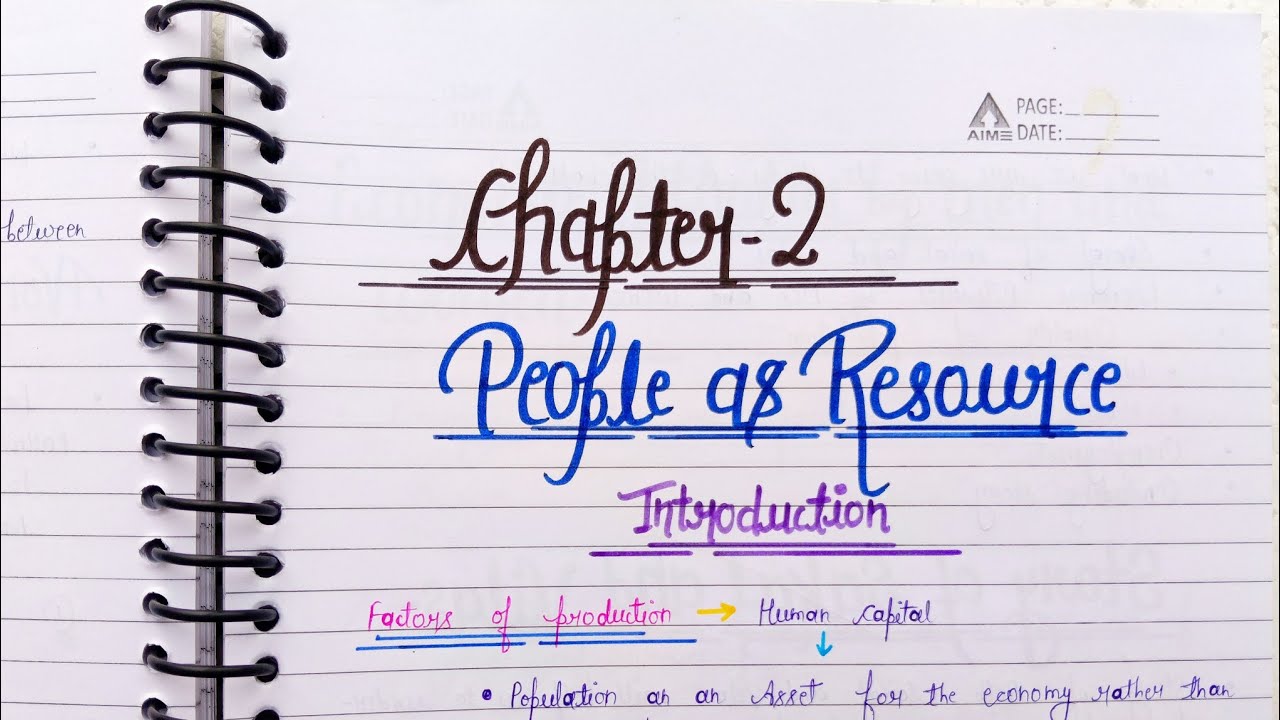 between
PAGE:
AIME DATE:
Chapter-2
People as Resource
Introduction
Factors of production → Human capital
↓
• Population an an Asset for the economy rather than